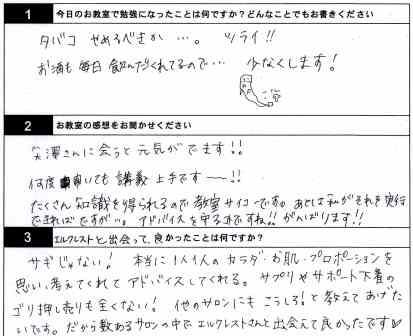 1 今日のお教室で勉強になったことは何ですか?どんなことでもお書きください
タバコ やめるべきか …。 ツライ!!
お酒も毎日飲んだくれてるので… 少なくします!
2 お教室の感想をお聞かせください
さんに会うと元気がでます!!
何度 いても 講義 上手です――!!
たくさん知識を得られるので教室サイコーです。あとは私がそれを実行
できればですが…。アドバイスを守るまでですね!! がんばります!!
3 エルクレストと出会って、良かったことは何ですか?
サギじゃない! 本当に1人1人のカラダ・お肌・プロポーションを
思い、考えてくれてアドバイスしてくれる。サプリやサポート下着の
ゴリ押し売りも全くない! 他のサロンにもこうしろ!と教えてあげた
いです。だから数あるサロンの中でエルクレストさんと出会えて良かったです